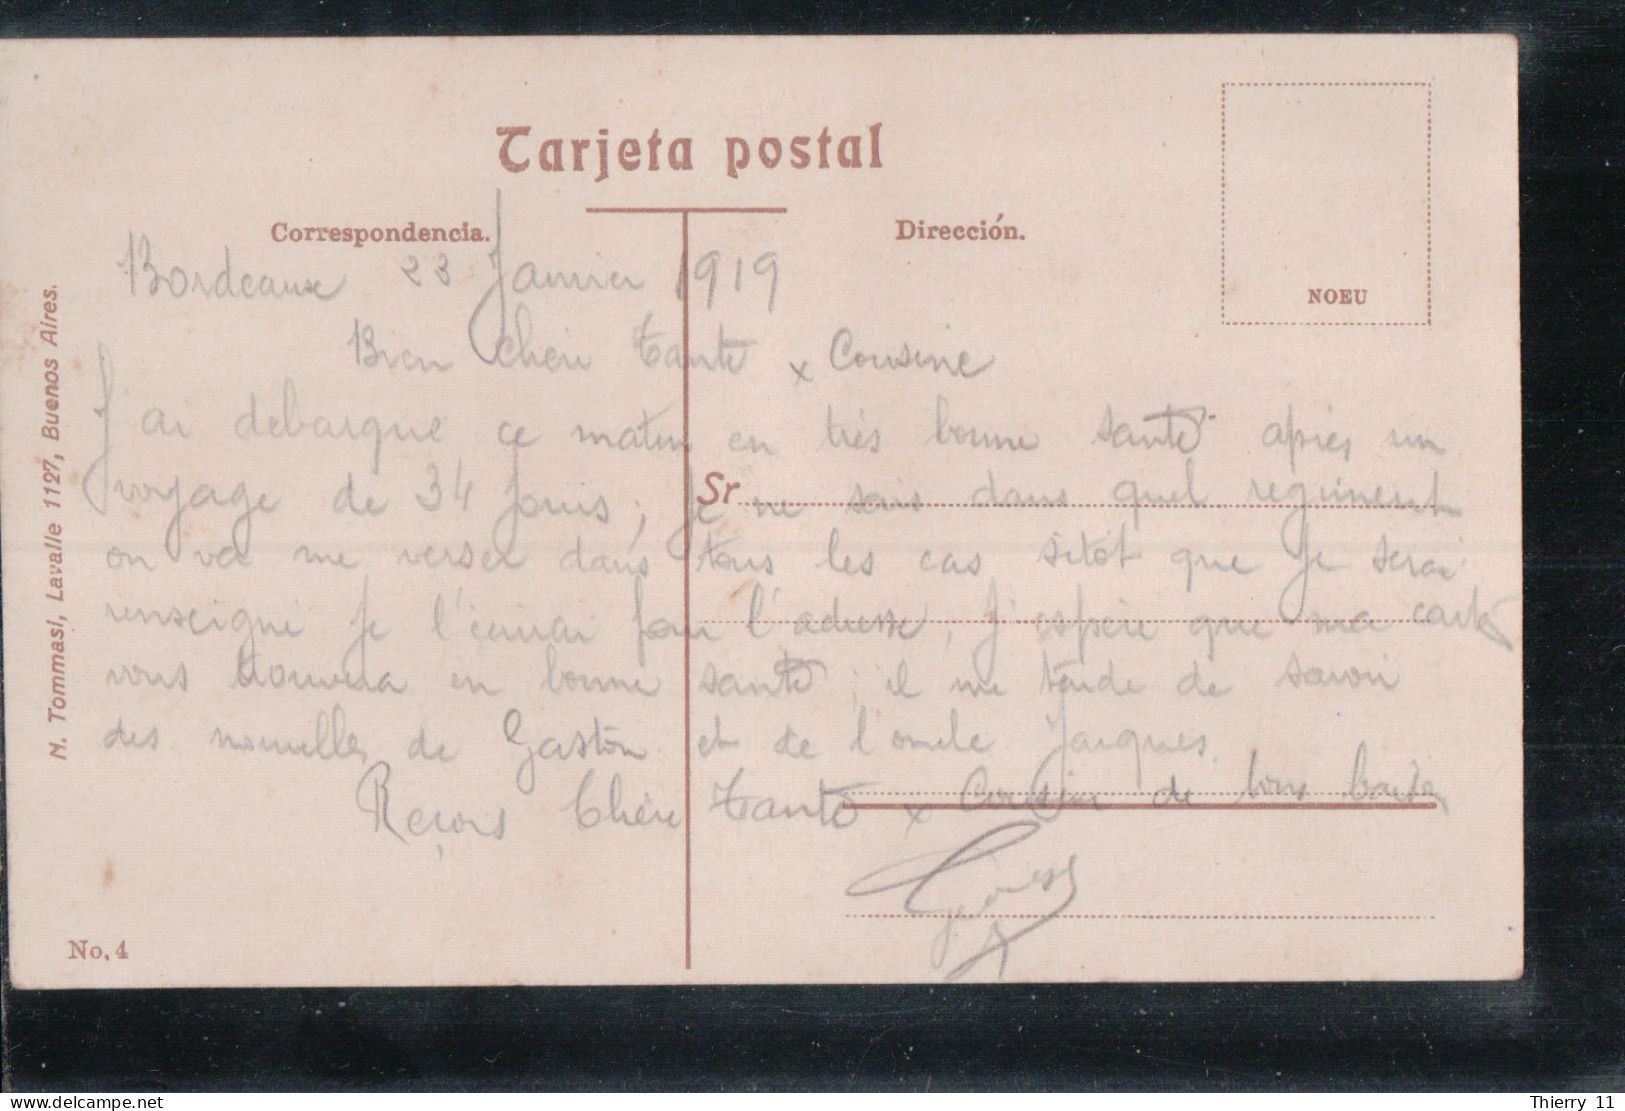 Tarjeta postal
Correspondencia.
Dirección.
NOEU
Bordeaux 23 Janvier 1919
Bien chère Tante x Cousine
J'ai debarqué ce matin en très bonne santé après un
voyage de 34 jours, je ne sais dans quel regiment
on va me verser dans tous les cas sitôt que je serai
renseigné je l'écrirai pour l'adresse, j'espère que ma carte
vous trouvera en bonne santé; il me tarde de savoir
des nouvelles de Gaston et de l'oncle Jacques.
Reçois Chère Tante x Cousine de bons
Sr
N. Tommasi, Lavalle 1127, Buenos Aires.
No. 4
Thierry 11
www.delcampe.net